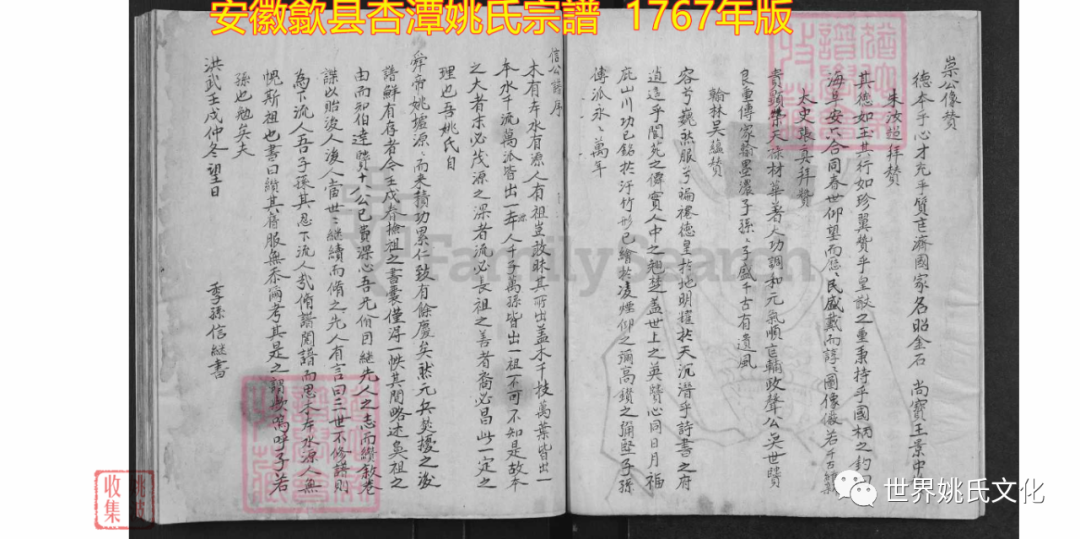 安徽歙县杏潭姚氏宗譜 1767年版
崇公像贊
德本乎心才充乎質官濟國家名昭金石 尚寶王景中
朱汝 拜贊
其德如玉其行如珍翼贊乎皇猷之重秉持乎國柄之鈞
海年安六合同春世仰望而 民感戴而諄圖像儼若千古
太史張 拜贊
責 榮天祿材華著人功調和元氣順官輔政聲公英世贊
良重傳家翰墨濃子孫多盛千古有遺風
翰林吳 贊
容兮巍然服兮 德皇於地明耀於天沉潛乎詩書之府
逍遥乎閬苑之偉實人中之翹楚蓋世上之英贊心同日月福
庇山川功已銘於汗竹形已繪於凌煙仰之彌高鑽之彌堅子孫
傳派永永萬年
信公譜序
木有本水有源人有祖豈敢昧其所出盖木千枝萬葉皆出一
本水千流萬派皆出一源人千子萬孫皆出一祖不可不知是故本
之大者末必茂源之深者流必長祖之善者裔必昌此一定之
理也吾姚氏自
舜帝姚墟源源而来積功累仁致有餘慶矣然元兵擾之後
譜鮮有存者今壬戌春檢祖之書囊僅得一帙其間略述鼻祖之
由而知伯達 十八公已費深心吾允份因継先人之志而纘叙卷
謀以貽後人後人當世世継續而脩之先人有言曰三世不修譜則
為下流人吾子孫其忍下流人哉脩譜閱譜而思木本水源人無
愧斯祖也書曰纘其舊服無忝爾考其是之謂歟嗚呼子若
孫也勉矣夫
洪武壬戌仲冬望日
季孫信継書
FamilySearch
收集
世界姚氏文化